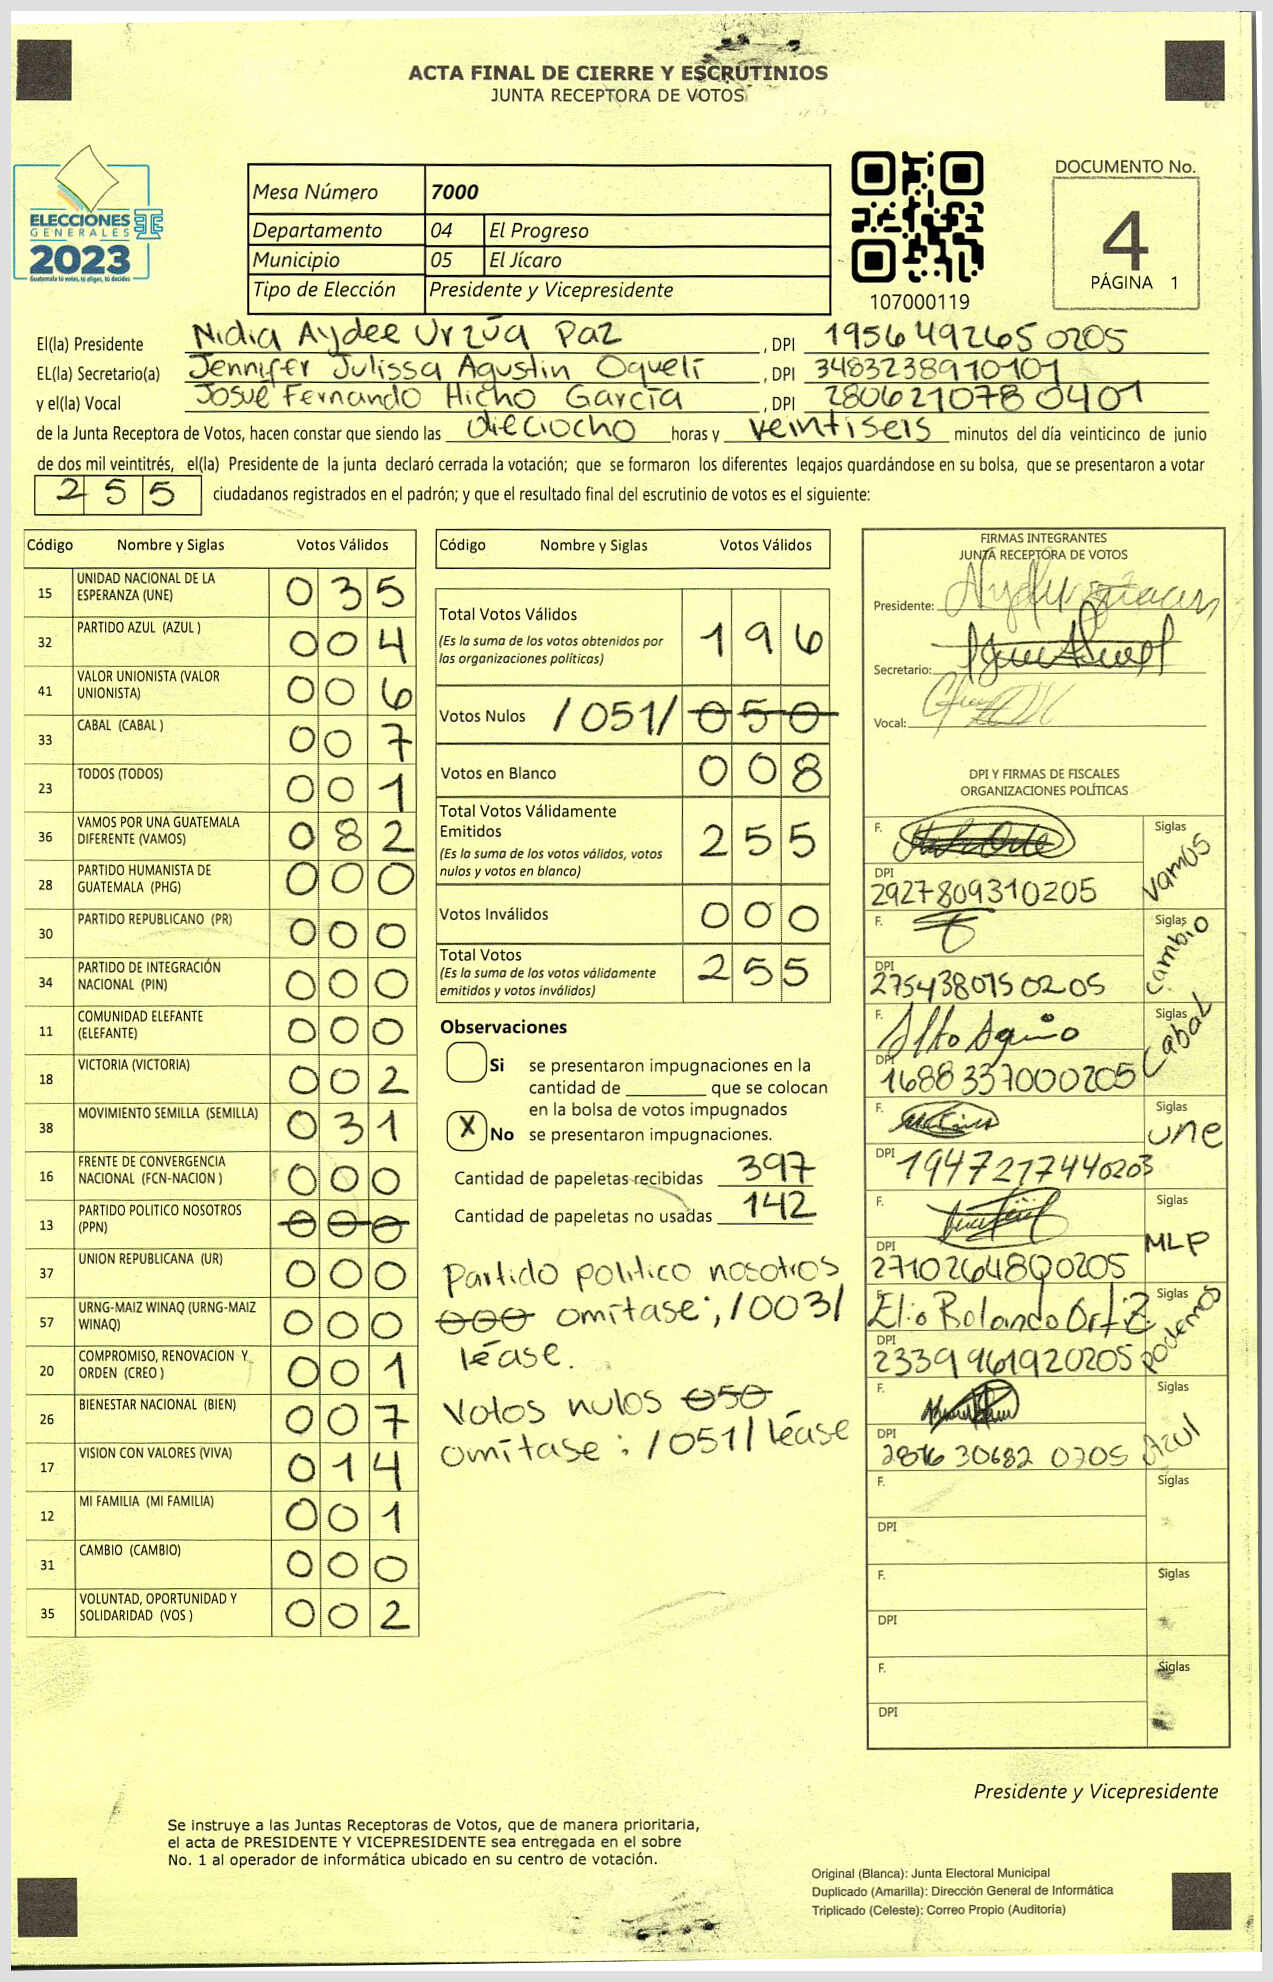 ACTA FINAL DE CIERRE Y ESCRUTINIOS
JUNTA RECEPTORA DE VOTOS
ELECCIONES
GENERALES
2023
Guatemala tú votas, tú eliges, tú decides
Mesa Número 7000
Departamento 04 El Progreso
Municipio 05 El Jícaro
Tipo de Elección Presidente y Vicepresidente
107000119
DOCUMENTO No.
4
PÁGINA 1
El(la) Presidente Nidia Aydee Urzúa Paz, DPI 1956492650205
EL(la) Secretario(a) Jennifer Julissa Agustin Oquelí, DPI 3483238910101
y el(la) Vocal Josué Fernando Hicho García, DPI 2806210780401
de la Junta Receptora de Votos, hacen constar que siendo las dieciocho horas y veintiseis minutos del día veinticinco de junio
de dos mil veintitrés, el(la) Presidente de la junta declaró cerrada la votación; que se formaron los diferentes legajos guardándose en su bolsa, que se presentaron a votar
255 ciudadanos registrados en el padrón; y que el resultado final del escrutinio de votos es el siguiente:
Código Nombre y Siglas Votos Válidos
15 UNIDAD NACIONAL DE LA
ESPERANZA (UNE) 035
32 PARTIDO AZUL (AZUL ) 004
41 VALOR UNIONISTA (VALOR
UNIONISTA) 006
33 CABAL (CABAL ) 007
23 TODOS (TODOS) 001
36 VAMOS POR UNA GUATEMALA
DIFERENTE (VAMOS) 082
28 PARTIDO HUMANISTA DE
GUATEMALA (PHG) 000
30 PARTIDO REPUBLICANO (PR) 000
34 PARTIDO DE INTEGRACIÓN
NACIONAL (PIN) 000
11 COMUNIDAD ELEFANTE
(ELEFANTE) 000
18 VICTORIA (VICTORIA) 002
38 MOVIMIENTO SEMILLA (SEMILLA) 031
16 FRENTE DE CONVERGENCIA
NACIONAL (FCN-NACION ) 000
13 PARTIDO POLITICO NOSOTROS
(PPN) 000
37 UNION REPUBLICANA (UR) 000
57 URNG-MAIZ WINAQ (URNG-MAIZ
WINAQ) 000
20 COMPROMISO, RENOVACION Y
ORDEN (CREO ) 001
26 BIENESTAR NACIONAL (BIEN) 007
17 VISION CON VALORES (VIVA) 014
12 MI FAMILIA (MI FAMILIA) 001
31 CAMBIO (CAMBIO) 000
35 VOLUNTAD, OPORTUNIDAD Y
SOLIDARIDAD (VOS ) 002
Código Nombre y Siglas Votos Válidos
Total Votos Válidos 196
(Es la suma de los votos obtenidos por
las organizaciones políticas)
Votos Nulos /051/ 050
Votos en Blanco 008
Total Votos Válidamente
Emitidos 255
(Es la suma de los votos válidos, votos
nulos y votos en blanco)
Votos Inválidos 000
Total Votos 255
(Es la suma de los votos válidamente
emitidos y votos inválidos)
Observaciones
Si se presentaron impugnaciones en la
cantidad de ________ que se colocan
en la bolsa de votos impugnados
X No se presentaron impugnaciones.
Cantidad de papeletas recibidas 397
Cantidad de papeletas no usadas 142
Partido político nosotros
000 omítase; /003/
léase.
Votos nulos 050
omítase: /051/ léase
FIRMAS INTEGRANTES
JUNTA RECEPTORA DE VOTOS
Presidente:
Secretario:
Vocal:
DPI Y FIRMAS DE FISCALES
ORGANIZACIONES POLÍTICAS
F. Siglas Vamos
DPI 2927809310205
F. Siglas Cambio
DPI 2754380150205
F. Siglas Cabal
DPI 1688337000205
F. Siglas une
DPI 1947217440203
F. Siglas MLP
DPI 2710264800205
F. Elio Rolando Ortiz Siglas Podemos
DPI 2339961920205
F. Siglas Azul
DPI
F. Siglas
DPI
F. Siglas
DPI
F. Siglas
DPI
Presidente y Vicepresidente
Se instruye a las Juntas Receptoras de Votos, que de manera prioritaria,
el acta de PRESIDENTE Y VICEPRESIDENTE sea entregada en el sobre
No. 1 al operador de informática ubicado en su centro de votación.
Original (Blanca): Junta Electoral Municipal
Duplicado (Amarilla): Dirección General de Informática
Triplicado (Celeste): Correo Propio (Auditoría)